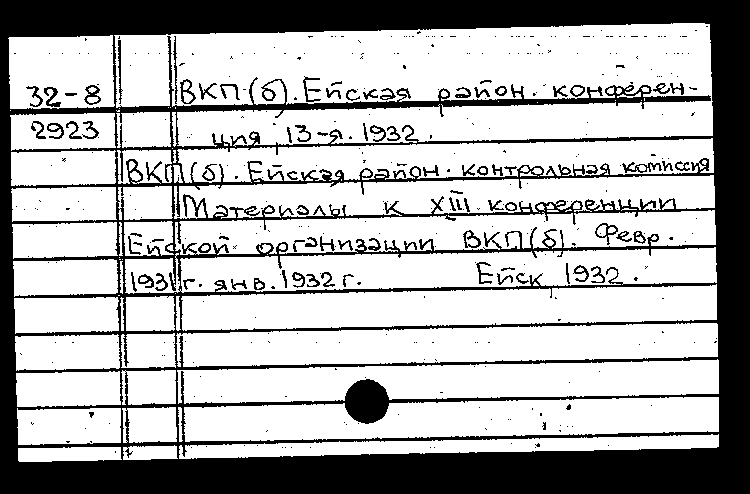 32-8 ВКП(б). Ейская район. конферен-
2923 ция, 13-я. 1932.
ВКП(б). Ейская район. контрольная комиссия
Материалы к XIII конференции
Ейской организации ВКП(б). Февр.
1931 г. янв. 1932 г. Ейск, 1932.